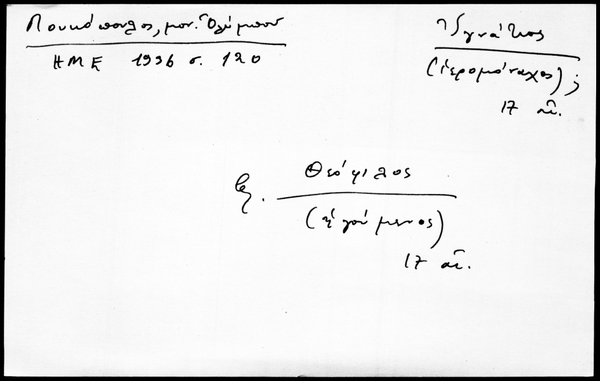 Πουκόπουλος, μον. Ολύμπου
ΗΜΕ 1936 σ. 120
Ἰγνάτιος
(ἱερομόναχος);
17 αἰ.
Θεόφιλος
(ἡγούμενος)
17 αἰ.